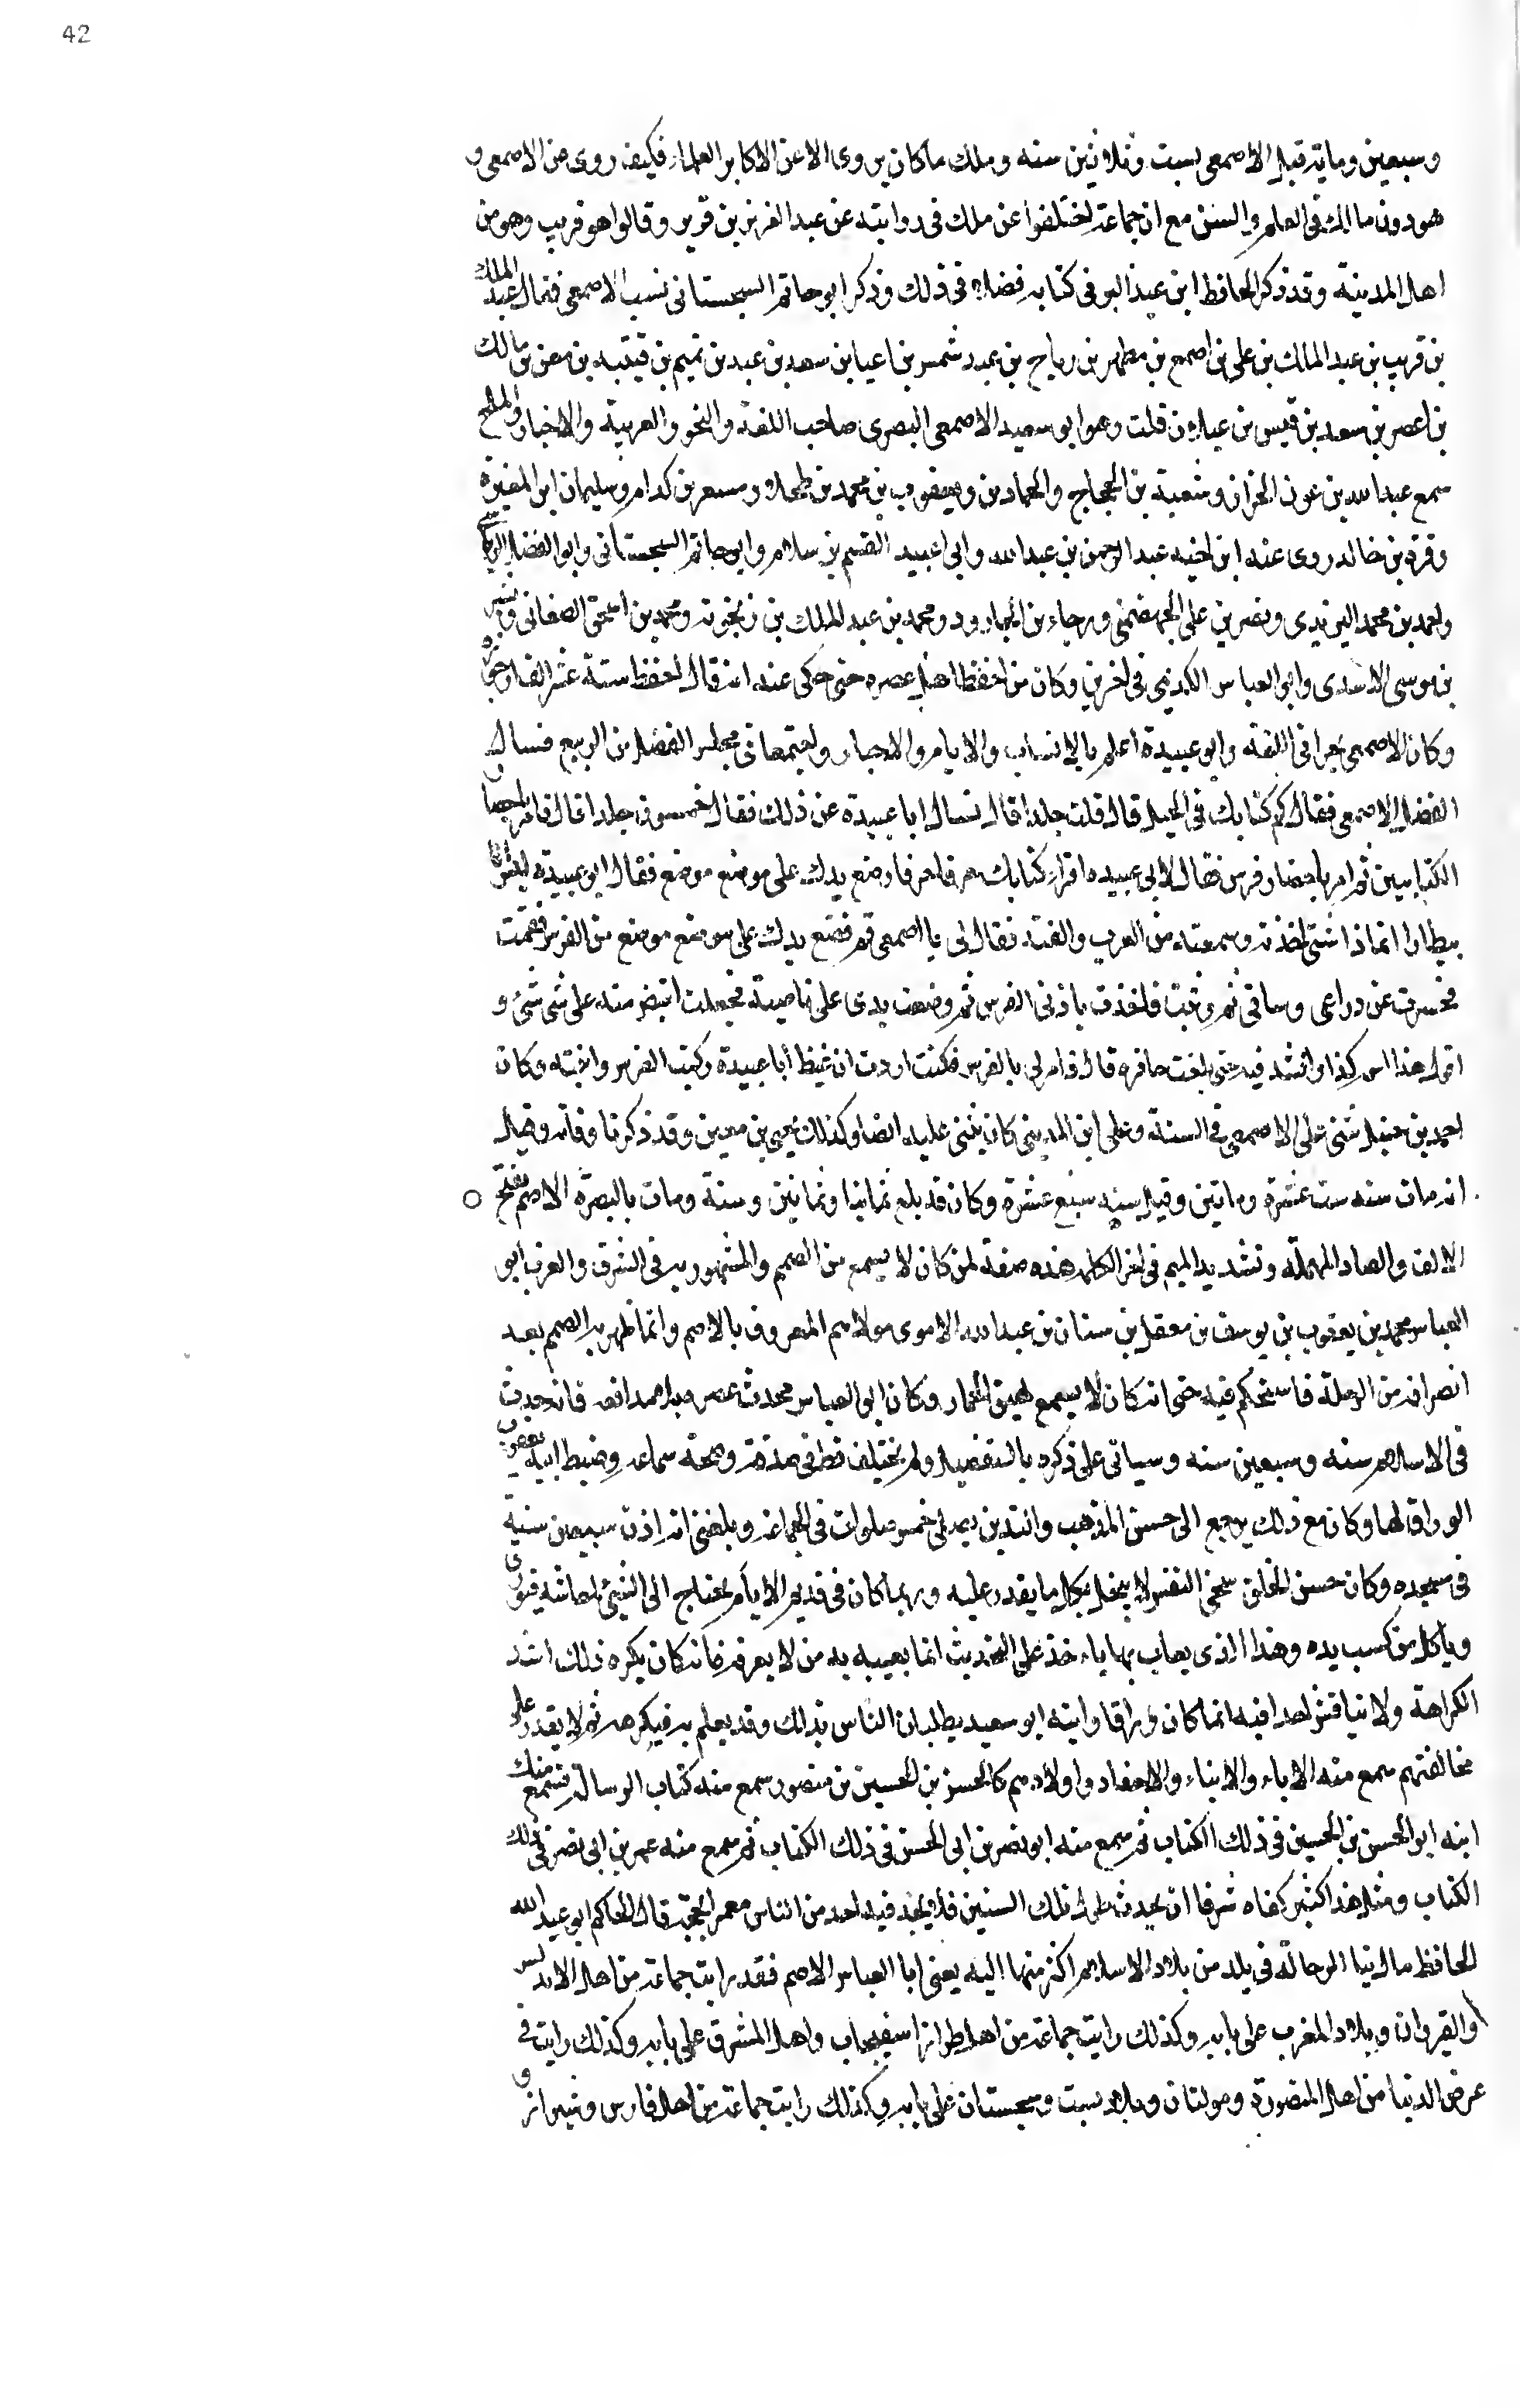 42
وسبعين وماية قبل الاصمعى بست وثلاثين سنه وملك ما كان يروى الا عن الاكابر العلماء فكيف روى عن الاصمعى و
هو دون مالك فى العلم والسنن مع ان جماعة اختلفوا عن ملك فى روايته عن عبد العزيز بن قرير وقالوا هو قريب وهو من
اهل المدينة وقد ذكر الحافظ ابن عبد البر فى كتابه فضلا فى ذلك وذكر ابو حاتم السجستانى نسب الاصمعى فقال عبد الملك
بن قريب بن عبد المالك بن على بن اصمع بن مظهر بن رياح بن عبد شمس بن اعيا بن سعد بن عبد بن تميم بن قتيبه بن معن بن مالك
بن اعصر بن سعد بن قيس بن عيلان قلت وهو ابو سعيد الاصمعى البصرى صاحب اللغة والنحو والعربية والاخبار والملح
سمع عبد الله بن عون الخزاز وشعبة بن الحجاج والحمادين ويعقوب بن محمد بن طحلا ومسعر بن كدام وسليمان ابن المغيرة
وقرة بن خالد روى عنه ابن اخيه عبد الرحمن بن عبد الله وابى اعبيد القسم بن سلام وابو حاتم السجستانى وابو الفضل الرياشى
واحمد بن محمد اليزيدى ونصر بن على الجهضمى ورجاء بن الجارود ومحمد بن عبد الملك بن زنجويه ومحمد بن اسحق الصغانى وبشر
بن موسى الاسدى وابو العباس الكديمى فى اخرين وكان من احفظ اهل عصره حتى حكى عنه انه قال احفظ ستة عشر الف ارجوزه
وكان الاصمعى بحرا فى اللغة وابو عبيدة اعلم بالانساب والايام والاخبار واجتمعا فى مجلس الفضل بن الربيع فسال
الفضل الاصمعى فقال كم كتابك فى الخيل قال قلت جلدا قال فسال ابا عبيدة عن ذلك فقال خمسون جلدا قال فامر باحضار
الكتابين ثم امر باحضار فرس فقال لابى عبيده اقراء كتابك حرفا حرفا وضع يدك على موضع موضع فقال ابو عبيدة ليس انا
بيطارا انما ذا شئ اخذته وسمعته من العرب والفته فقال لى يا اصمعى قم فضع يدك على موضع موضع من الفرس فقمت
فحسرت عن ذراعى وساقى ثم وثبت فاخذت باذنى الفرس ثم وضعت يدى على ناصيته فجعلت اقبض منه على شئ شئ و
اقول هذا اسمه كذا وانشد فيه حتى بلغت حافره قال فامر لى بالفرس فكنت اذا اردت ان غيظ أبا عبيدة ركبت الفرس واتيته وكان
احمد بن حنبل يثنى على الاصمعى فى السنة وعلى ابن المدينى كان يثنى عليه ايضا وكذلك يحيى بن معين وقد ذكرنا وفاته وقيل
انه مات سنه ست عشرة وماتين وقيل سنه سبع عشرة وكان قد بلغ ثمانيا وثمانين وسنة ومات بالبصرة الاصم بفتح
الالف والصاد المهملة وتشديد الميم فى اخر الكلمه هذه صفة لمن كان لا يسمع من الصمم والمشهور به فى الشرق والغرب ابو
العباس محمد بن يعقوب بن يوسف بن معقل بن سنان بن عبد الله الاموى مولاهم المعروف بالاصم وانما ظهر به الصمم بعد
انصرافه من الرحلة فاستحكم فيه حتى انه كان لا يسمع نهيق الحمار وكان ابو العباس محدث عصره بلا مدافعه فانه حدث
فى الاسلام سنه وسبعين سنه وسياتى على ذكره بالتفصيل ولم يختلف قط فى صدقه وصحة سماعه وضبط ابيه يعقوب
الوراق لها وكان مع ذلك يرجع الى حسن المذهب والتدين يصلى خمس صلوات فى الجماعة وبلغنى انه اذن سبعين سنة
فى مسجده وكان حسن الخلق سخى النفس لا يبخل بكل ما يقدر عليه وربما كان فى قديم الايام يحتاج الى الشئ لمعاشه فيورق
وياكل من كسب يده وهذا الذى يعاب بها ياء خذ على الحديث انما يعيبه به من لا يعرفه فانه كان يكره ذلك اشد
الكراهة ولا يناقش احدا فيه انما كان وراقا وابنه ابو سعيد يطلبان الناس بذلك وقد يعلم به فيكرهه ثم لا يقدر على
مخالفتهم سمع منه الاباء والابناء والاحفاد واولادهم كالحسن بن الحسين بن منصور سمع منه كتاب الرسالة فسمع منه
ابنه ابو الحسن بن الحسين فى ذلك الكتاب ثم سمع منه ابو نصر بن ابى الحسن فى ذلك الكتاب ثم سمع منه عمر بن ابى نصر فى ذلك
الكتاب ومثل هذا كثير كفاه شرفا ان يحدث طول تلك السنين فلا يجد فيه احد من الناس مغمز الحجة قال الحاكم ابو عبد الله
الحافظ ما راينا الرحالة فى بلد من بلاد الاسلام اكثر منها اليه يعنى ابا العباس الاصم فقد رايت جماعة من اهل الاندلس
والقيروان وبلاد المغرب على بابه وكذلك رايت جماعة من اهل طراز اسفيجاب واهل المشرق على بابه وكذلك رايت فى
عرض الدنيا من اهل المنصورة ومولتان وبلاد بست وسجستان على بابه وكذلك رايت جماعة من اهل فارس وشيراز و